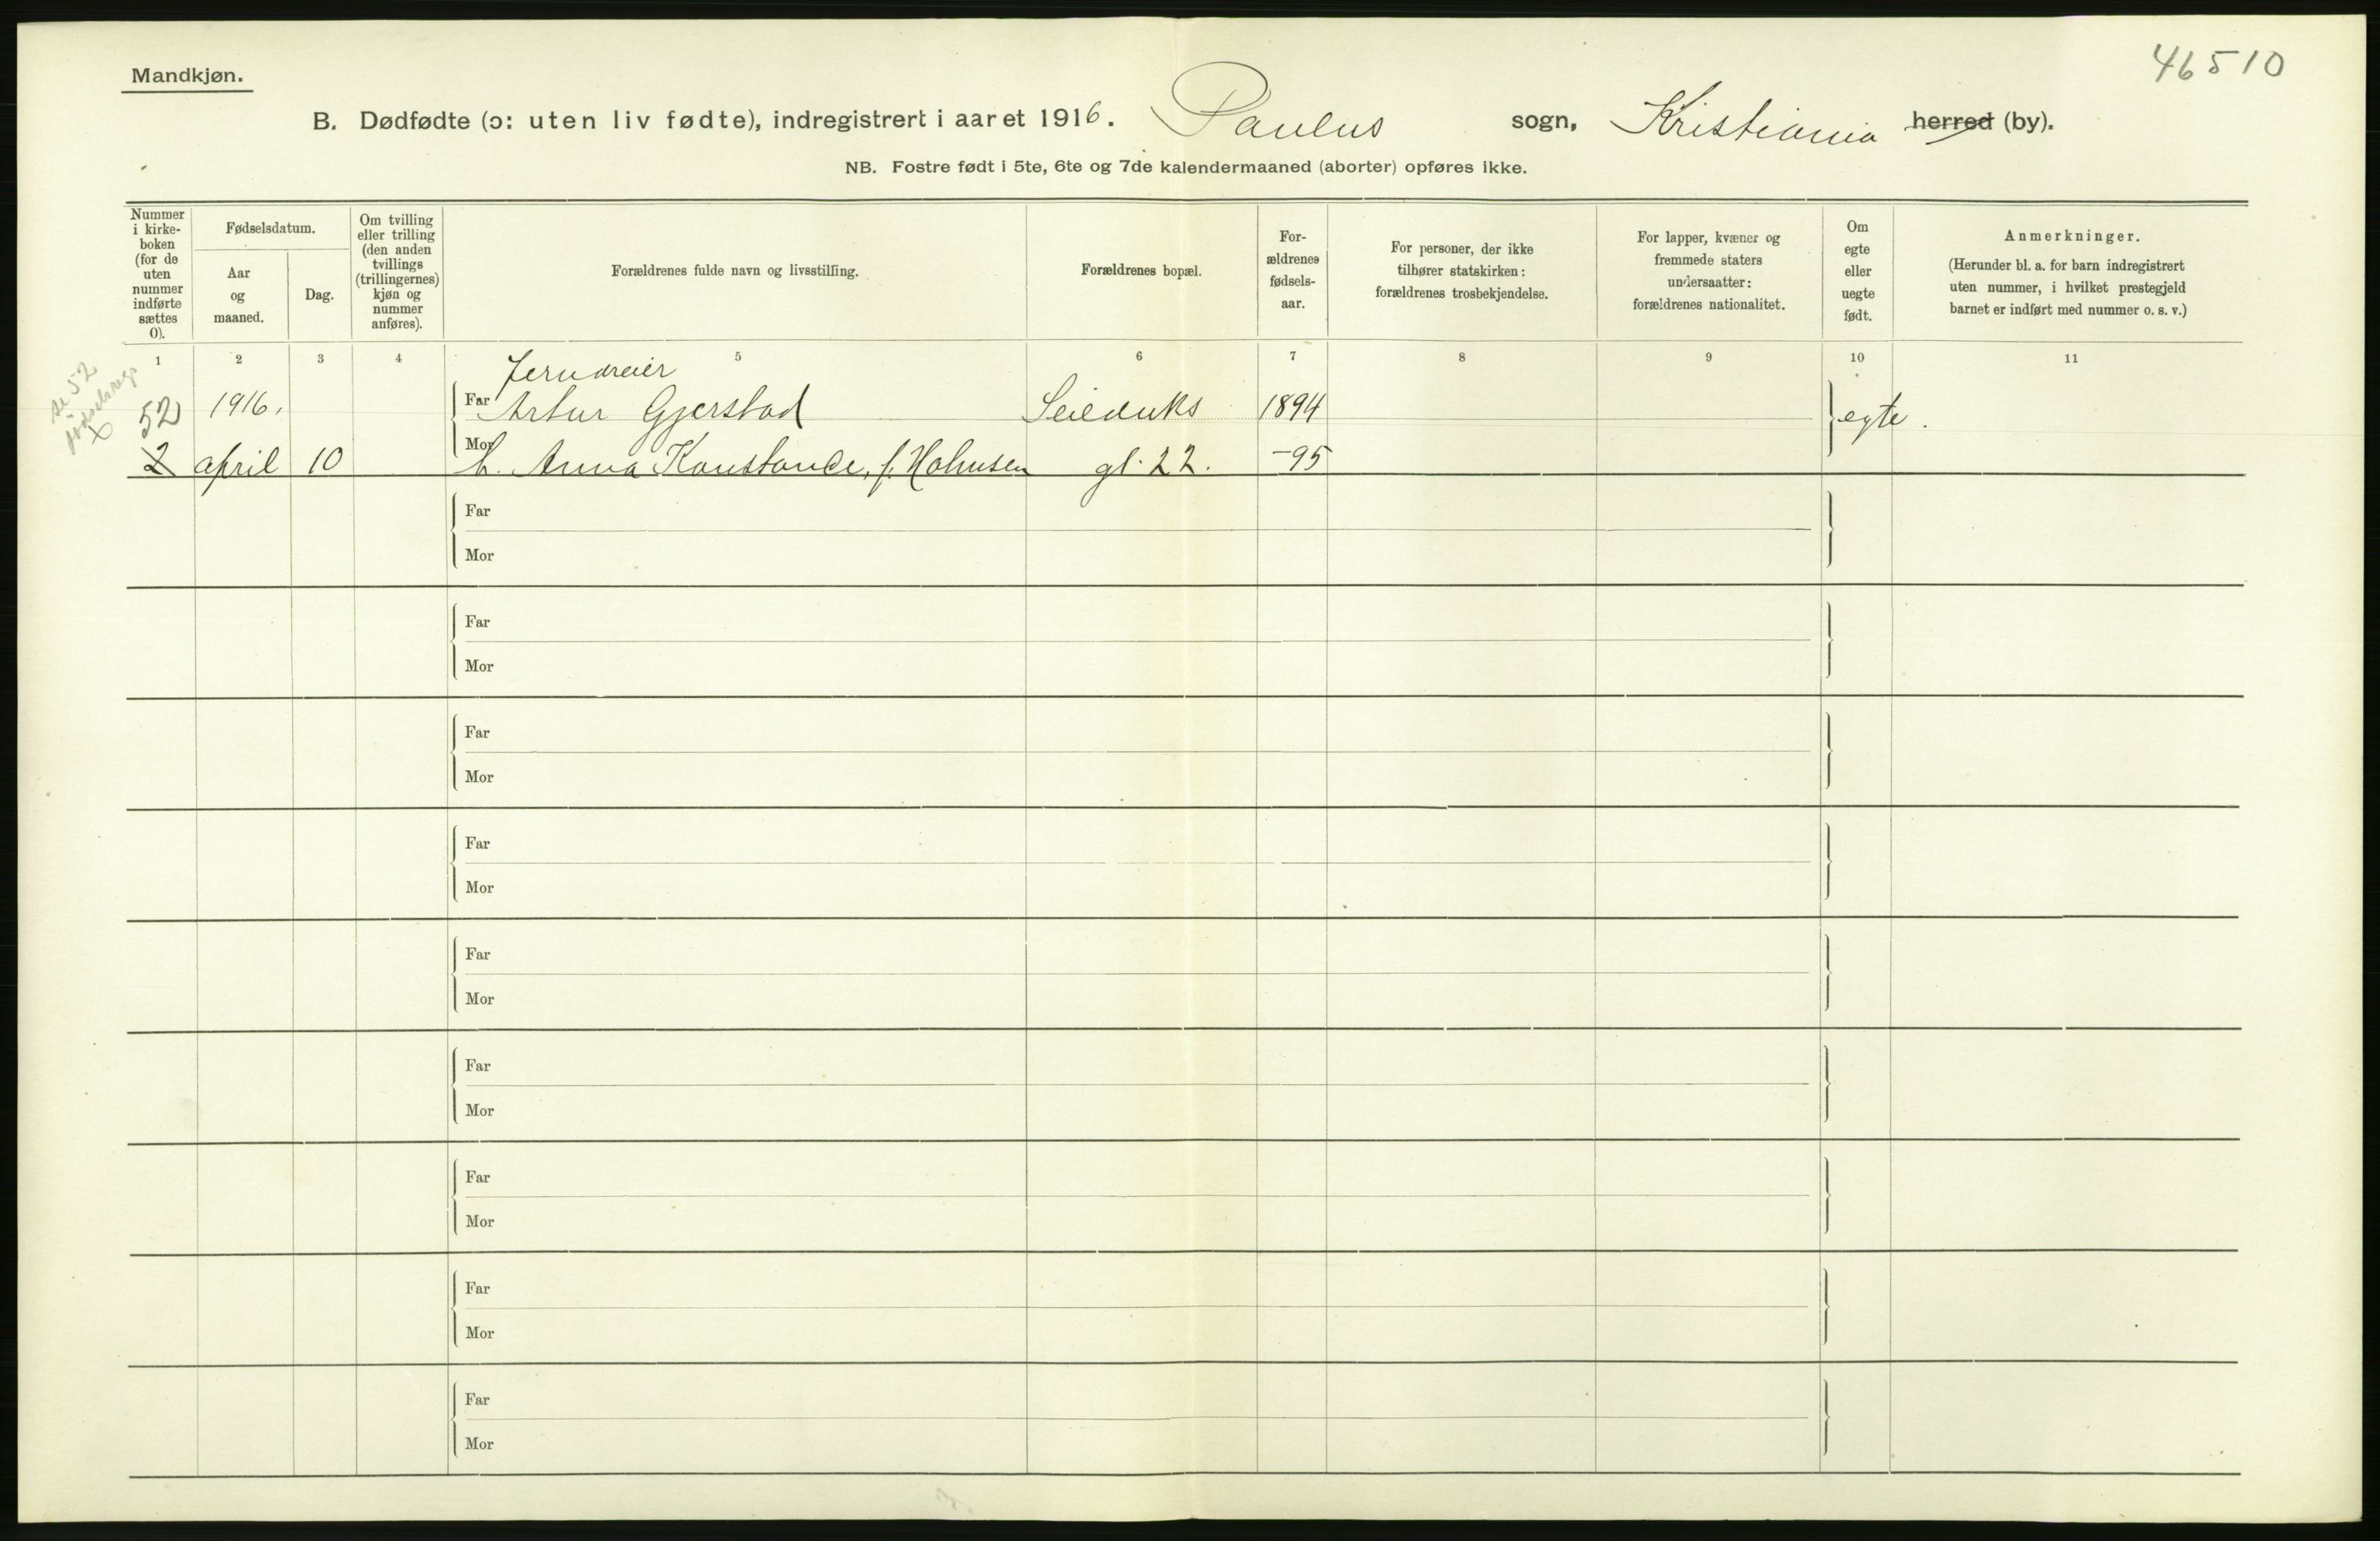 46510
Mandkjøn.
B. Dødfødte (ɔ: uten liv fødte), indregistrert i aaret 1916. Paulus sogn, Kristiania herred (by).
NB. Fostre født i 5te, 6te og 7de kalendermaaned (aborter) opføres ikke.
Nummer i kirke-boken (for de uten nummer indførte sættes 0).
Fødselsdatum.
Aar og maaned.
Dag.
Om tvilling eller trilling (den anden tvillings (trillingernes) kjøn og nummer anføres).
Forældrenes fulde navn og livsstilling.
Forældrenes bopæl.
For-ældrenes fødsels-aar.
For personer, der ikke tilhører statskirken: forældrenes trosbekjendelse.
For lapper, kvæner og fremmede staters undersaatter: forældrenes nationalitet.
Om egte eller uegte født.
Anmerkninger.
(Herunder bl. a. for barn indregistrert uten nummer, i hvilket prestegjeld barnet er indført med nummer o. s. v.)
1 2 3 4 5 6 7 8 9 10 11
se 52
fødselsreg.
x
Jerndreier
52 1916. Far Artur Gjerstad Seilduks 1894 egte.
2 april 10 Mor h. Anna Konstance, f. Holmsen gt. 22. -95
Far
Mor
Far
Mor
Far
Mor
Far
Mor
Far
Mor
Far
Mor
Far
Mor
Far
Mor
Far
Mor